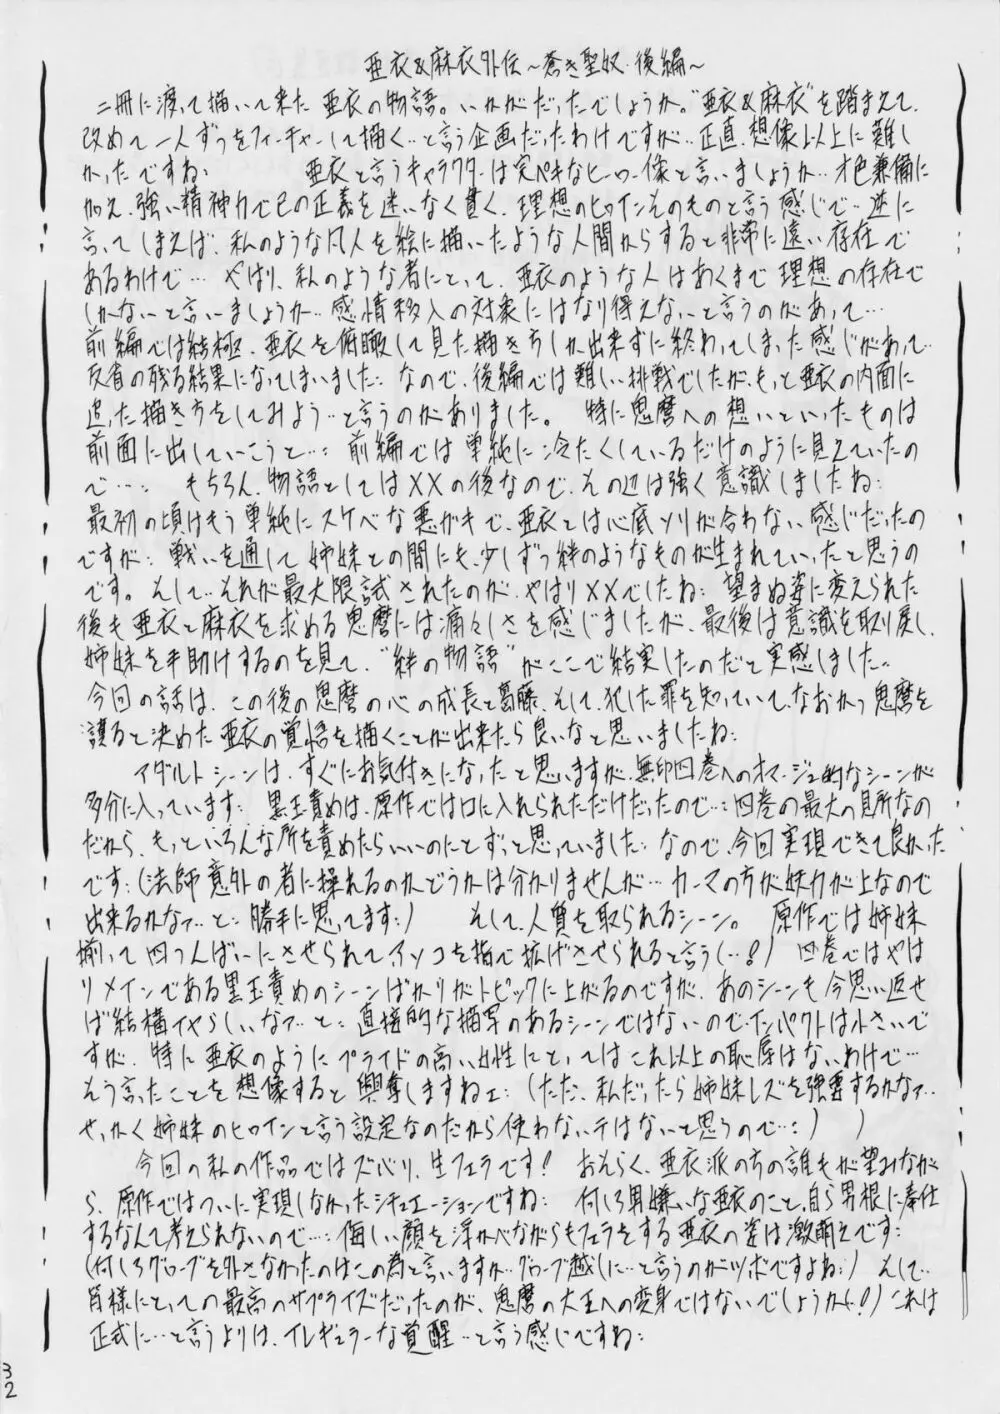 亜衣&麻衣外伝～蒼き聖奴・後編～
二冊に渡って描いて来た亜衣の物語。いかがだったでしょうか。"亜衣&麻衣"を踏まえて、
改めて一人ずつをフィーチャーして描く‥と言う企画だったわけですが‥正直、想像以上に難し
かったですね。 亜衣と言うキャラクターは完ペキなヒーロー像と言いましょうか‥才色兼備に
加え、強い精神力で己の正義を迷いなく貫く、理想のヒロインそのものと言う感じで‥逆に
言ってしまえば、私のような凡人を絵に描いたような人間からすると非常に遠い存在で
あるわけで… やはり、私のような者にとって、亜衣のような人はあくまで理想の存在で
しかないと言いましょうか‥感情移入の対象にはなり得えないと言うのがあって…
前編では結極、亜衣を俯瞰して見た描き方しか出来ずに終わってしまった感じがあって‥
反省の残る結果になってしまいました： なので、後編では難しい挑戦でしたが、もっと亜衣の内面に
迫った描き方をしてみよう‥と言うのがありました。 特に鬼麿への想いといったものは
前面に出していこうと…：前編では単純に冷たくしているだけのように見えていたの
で…： もちろん、物語としてはXXの後なので、その辺は強く意識しましたね：
最初の頃はもう単純にスケベな悪ガキで、亜衣とは心底ソリが合わない感じだったの
ですが：戦いを通して姉妹との間にも、少しずつ絆のようなものが生まれていったと思うの
です。そして‥それが最大限試されたのが、やはりXXでしたね：望まぬ姿に変えられた
後も亜衣と麻衣を求める鬼麿には痛々しさを感じましたが、最後は意識を取り戻し、
姉妹を手助けするのを見て、"絆の物語"がここで結実したのだと実感しました‥
今回の話は、この後の鬼麿の心の成長と葛藤、そして、犯した罪を知っていて、なおかつ鬼麿を
護ると決めた亜衣の覚悟を描くことが出来たら良いなと思いましたね：
アダルトシーンは、すぐにお気付きになったと思いますが、無印四巻へのオマージュ的なシーンが
多分に入っています： 黒玉責めは、原作では口に入れられただけだったので…：四巻の最大の見所なの
だから、もっといろんな所を責めたらいいのにとずっと思っていました：なので、今回実現できて良かった
です：(法師意外の者に操れるのかどうかは分かりませんが…カーマの方が妖力が上なので
出来るかなァ‥と：勝手に思ってます：) そして、人質を取られるシーン。 原作では姉妹
揃って四つんばいにさせられて、アソコを指で拡げさせられると言う(…！) 四巻ではやは
りメインである黒玉責めのシーンばかりがトピックに上がるのですが、あのシーンも今思い返せ
ば結構イヤらしいなァ‥と：直接的な描写のあるシーンではないので、インパクトは小さいで
すが、特に亜衣のようにプライドの高い女性にとってはこれ以上の恥辱はないわけで…
そう言ったことを想像すると興奮しますねェ：(ただ、私だったら姉妹レズを強要するかなァ‥
せっかく姉妹のヒロインと言う設定なのだから使わないテはないと思うので…：) )
今回の私の作品ではズバリ、生フェラです！ おそらく、亜衣派の方の誰もが望みなが
ら、原作ではついに実現しなかったシチュエーションですね： 何しろ男嫌いな亜衣のこと、自ら男根に奉仕
するなんて考えられないので…：悔しい顔を浮かべながらもフェラをする亜衣の姿は激萌えです：
(何しろグローブを外さなかったのはこの為と言いますか‥グローブ越しに…と言うのがツボですよね：) そして‥
皆様にとっての最高のサプライズだったのが、鬼麿の大王への変身ではないでしょうか(！)これは
正式に…と言うよりは、イレギュラーな覚醒‥と言う感じですね：
32